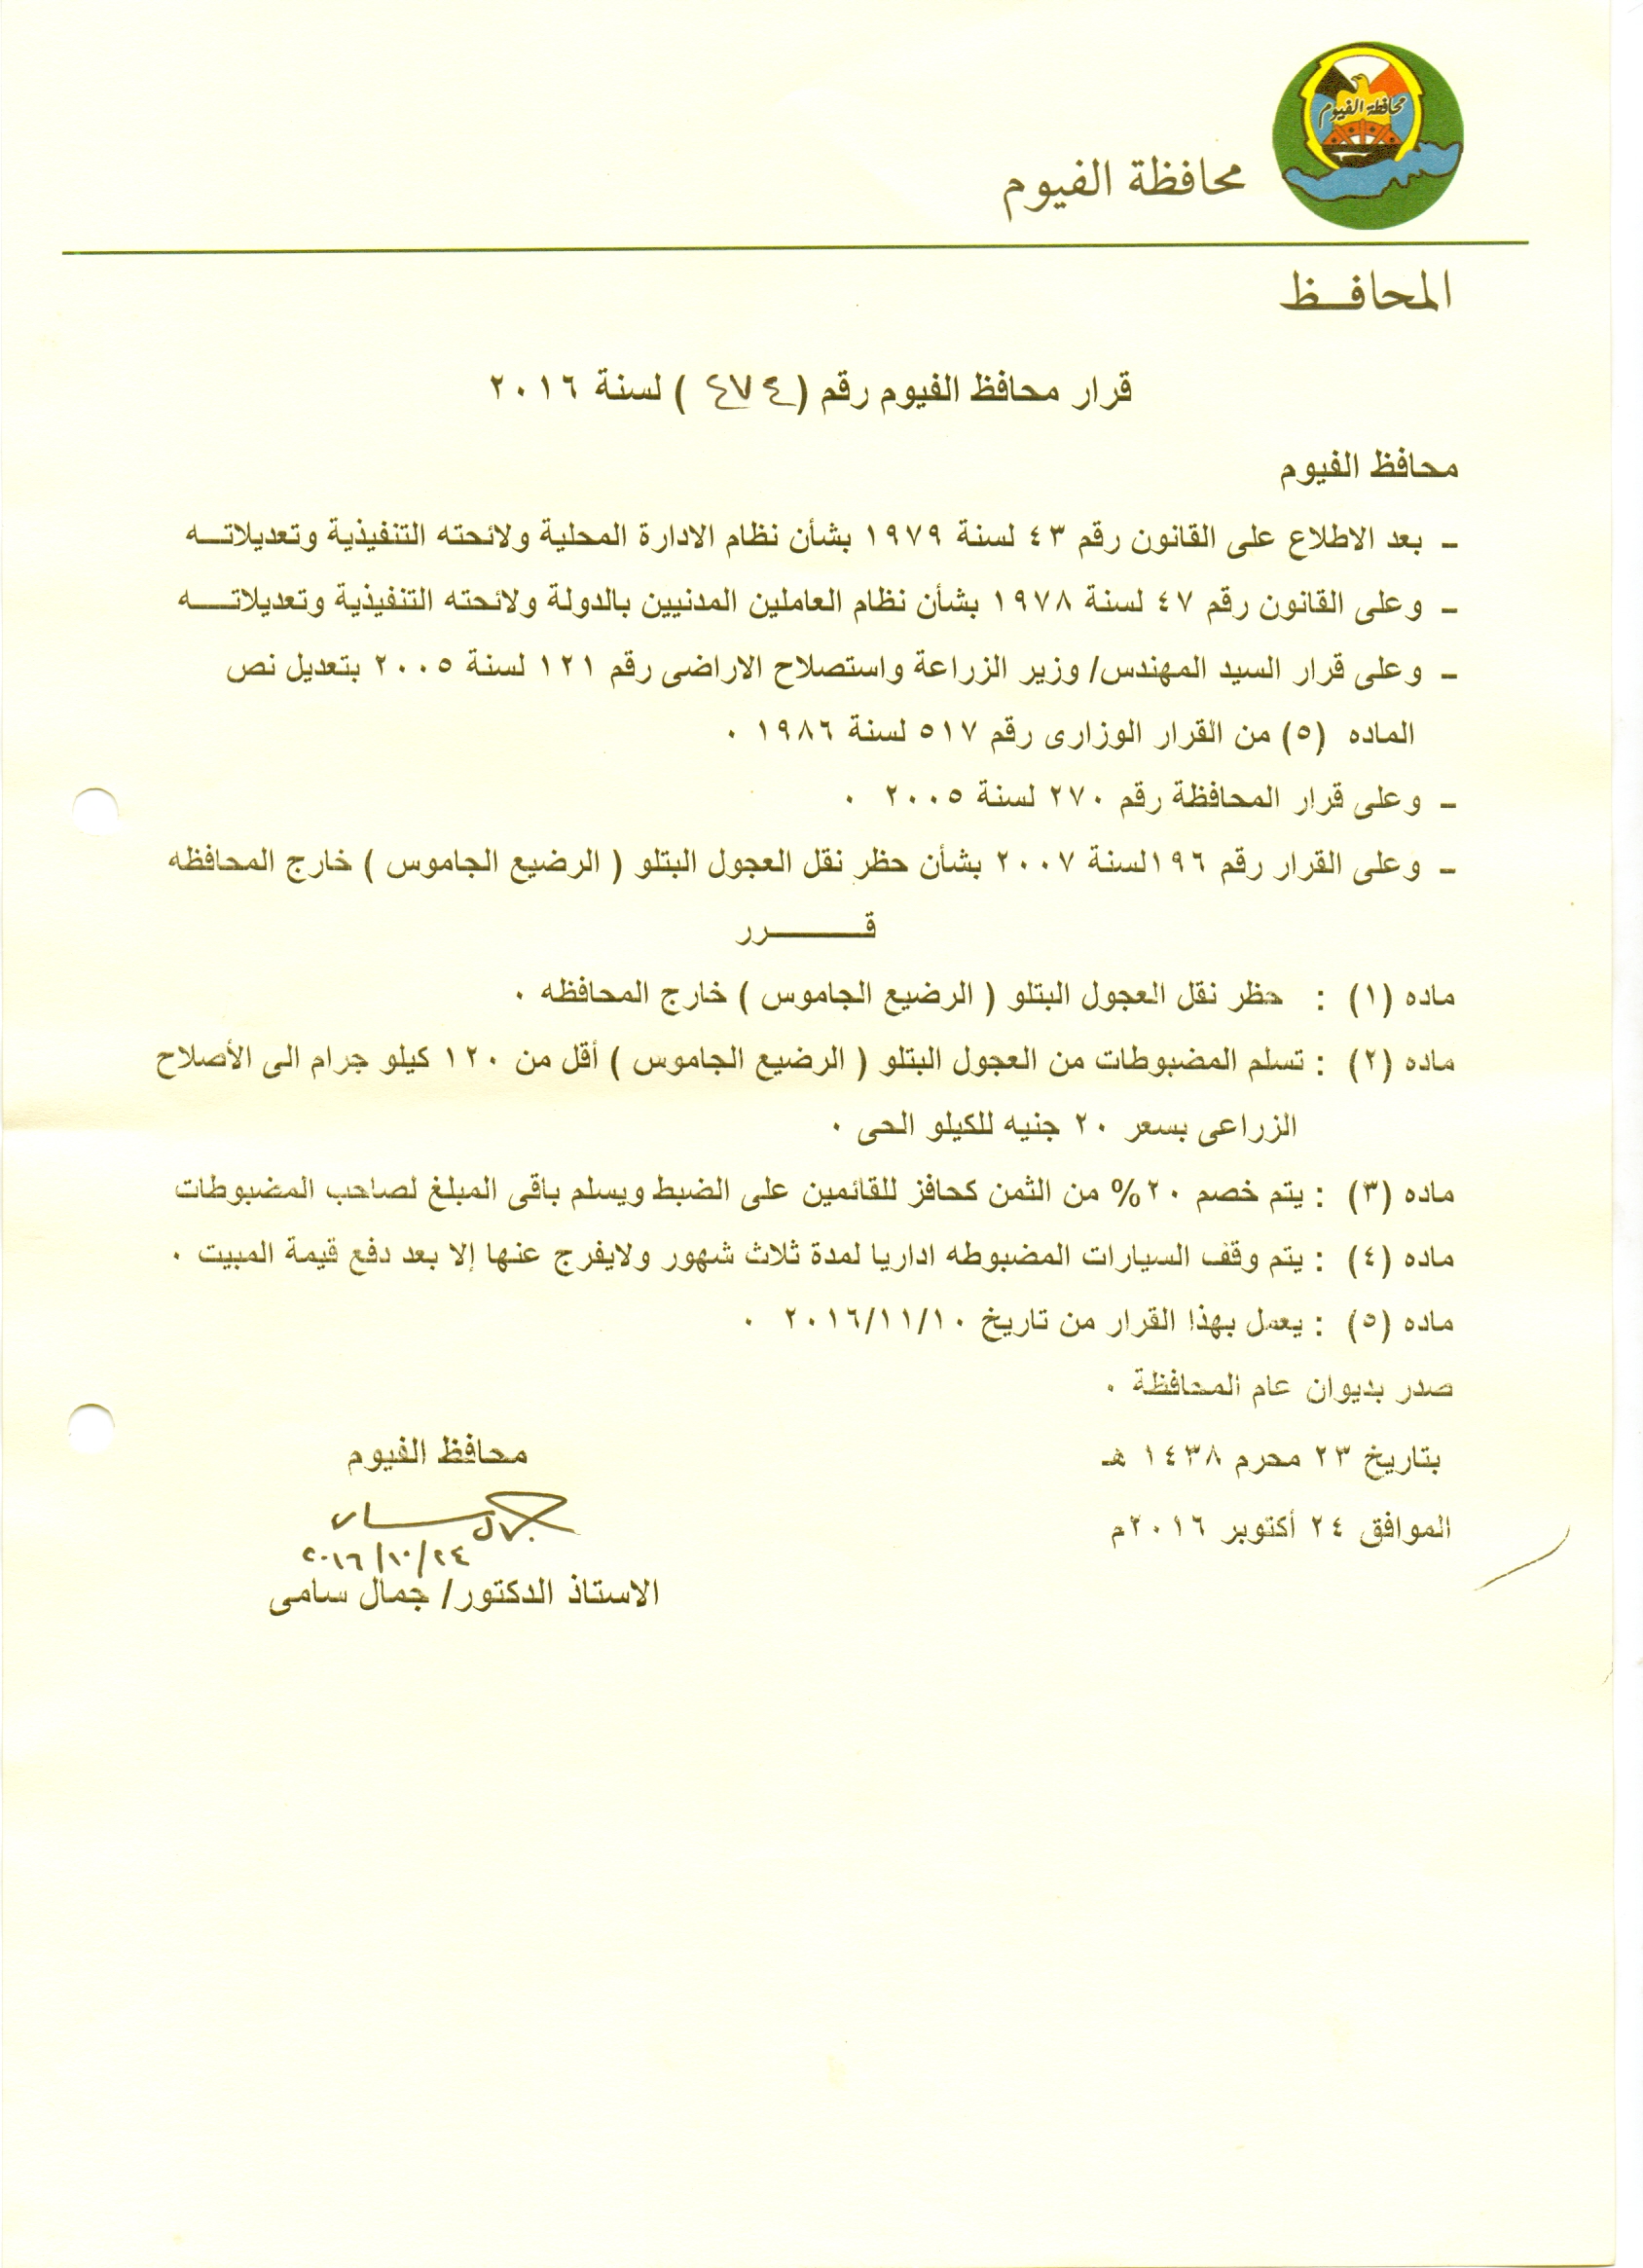 محافظة الفيوم
محافظة الفيوم
المحافـــظ
قرار محافظ الفيوم رقم (٤٧٤ ) لسنة ٢٠١٦
محافظ الفيوم
ـ بعد الاطلاع على القانون رقم ٤٣ لسنة ١٩٧٩ بشأن نظام الادارة المحلية ولائحته التنفيذية وتعديلاتـــه
ـ وعلى القانون رقم ٤٧ لسنة ١٩٧٨ بشأن نظام العاملين المدنيين بالدولة ولائحته التنفيذية وتعديلاتــــه
ـ وعلى قرار السيد المهندس/ وزير الزراعة واستصلاح الاراضى رقم ١٢١ لسنة ٢٠٠٥ بتعديل نص
الماده (٥) من القرار الوزارى رقم ٥١٧ لسنة ١٩٨٦ .
ـ وعلى قرار المحافظة رقم ٢٧٠ لسنة ٢٠٠٥ .
ـ وعلى القرار رقم ١٩٦لسنة ٢٠٠٧ بشأن حظر نقل العجول البتلو ( الرضيع الجاموس ) خارج المحافظه
قـــــــــرر
ماده (١) : حظر نقل العجول البتلو ( الرضيع الجاموس ) خارج المحافظه .
ماده (٢) : تسلم المضبوطات من العجول البتلو ( الرضيع الجاموس ) أقل من ١٢٠ كيلو جرام الى الأصلاح
الزراعى بسعر ٢٠ جنيه للكيلو الحى .
ماده (٣) : يتم خصم ٢٠% من الثمن كحافز للقائمين على الضبط ويسلم باقى المبلغ لصاحب المضبوطات
ماده (٤) : يتم وقف السيارات المضبوطه اداريا لمدة ثلاث شهور ولايفرج عنها إلا بعد دفع قيمة المبيت .
ماده (٥) : يعمل بهذا القرار من تاريخ ٢٠١٦/١١/١٠ .
صدر بديوان عام المحافظة .
بتاريخ ٢٣ محرم ١٤٣٨ هـ
الموافق ٢٤ أكتوبر ٢٠١٦م
محافظ الفيوم
٢٠١٦/١٠/٢٤
الاستاذ الدكتور/ جمال سامى